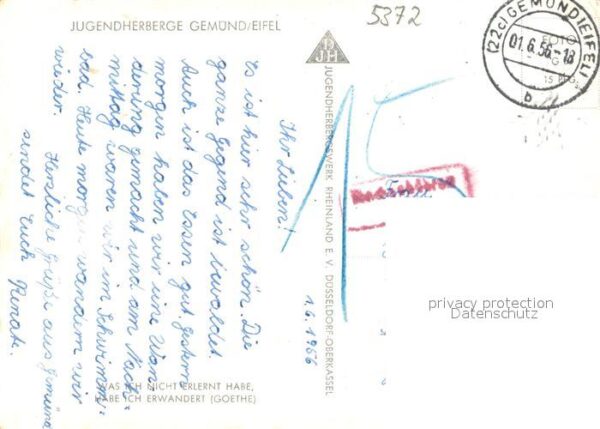 JUGENDHERBERGE GEMÜND/EIFEL
5372
(22c) GEMÜND (EIFEL)
01.6.56-18
b
FOTO
15 PFG.
DJH
JUGENDHERBERGSWERK RHEINLAND E. V. DÜSSELDORF-OBERKASSEL
1.6.1956
Ihr Lieben!
Es ist hier sehr schön. Die
ganze Gegend ist bewaldet.
Auch ist das Essen gut. Gestern
morgen haben wir eine Wan-
derung gemacht und am Nach-
mittag waren wir im Schwimm-
bad. Heute morgen wandern wir
wieder.
Herzliche Grüße aus Gemünd
sendet Euch Renate.
15
WAS ICH NICHT ERLERNT HABE,
HABE ICH ERWANDERT (GOETHE)
privacy protection
Datenschutz